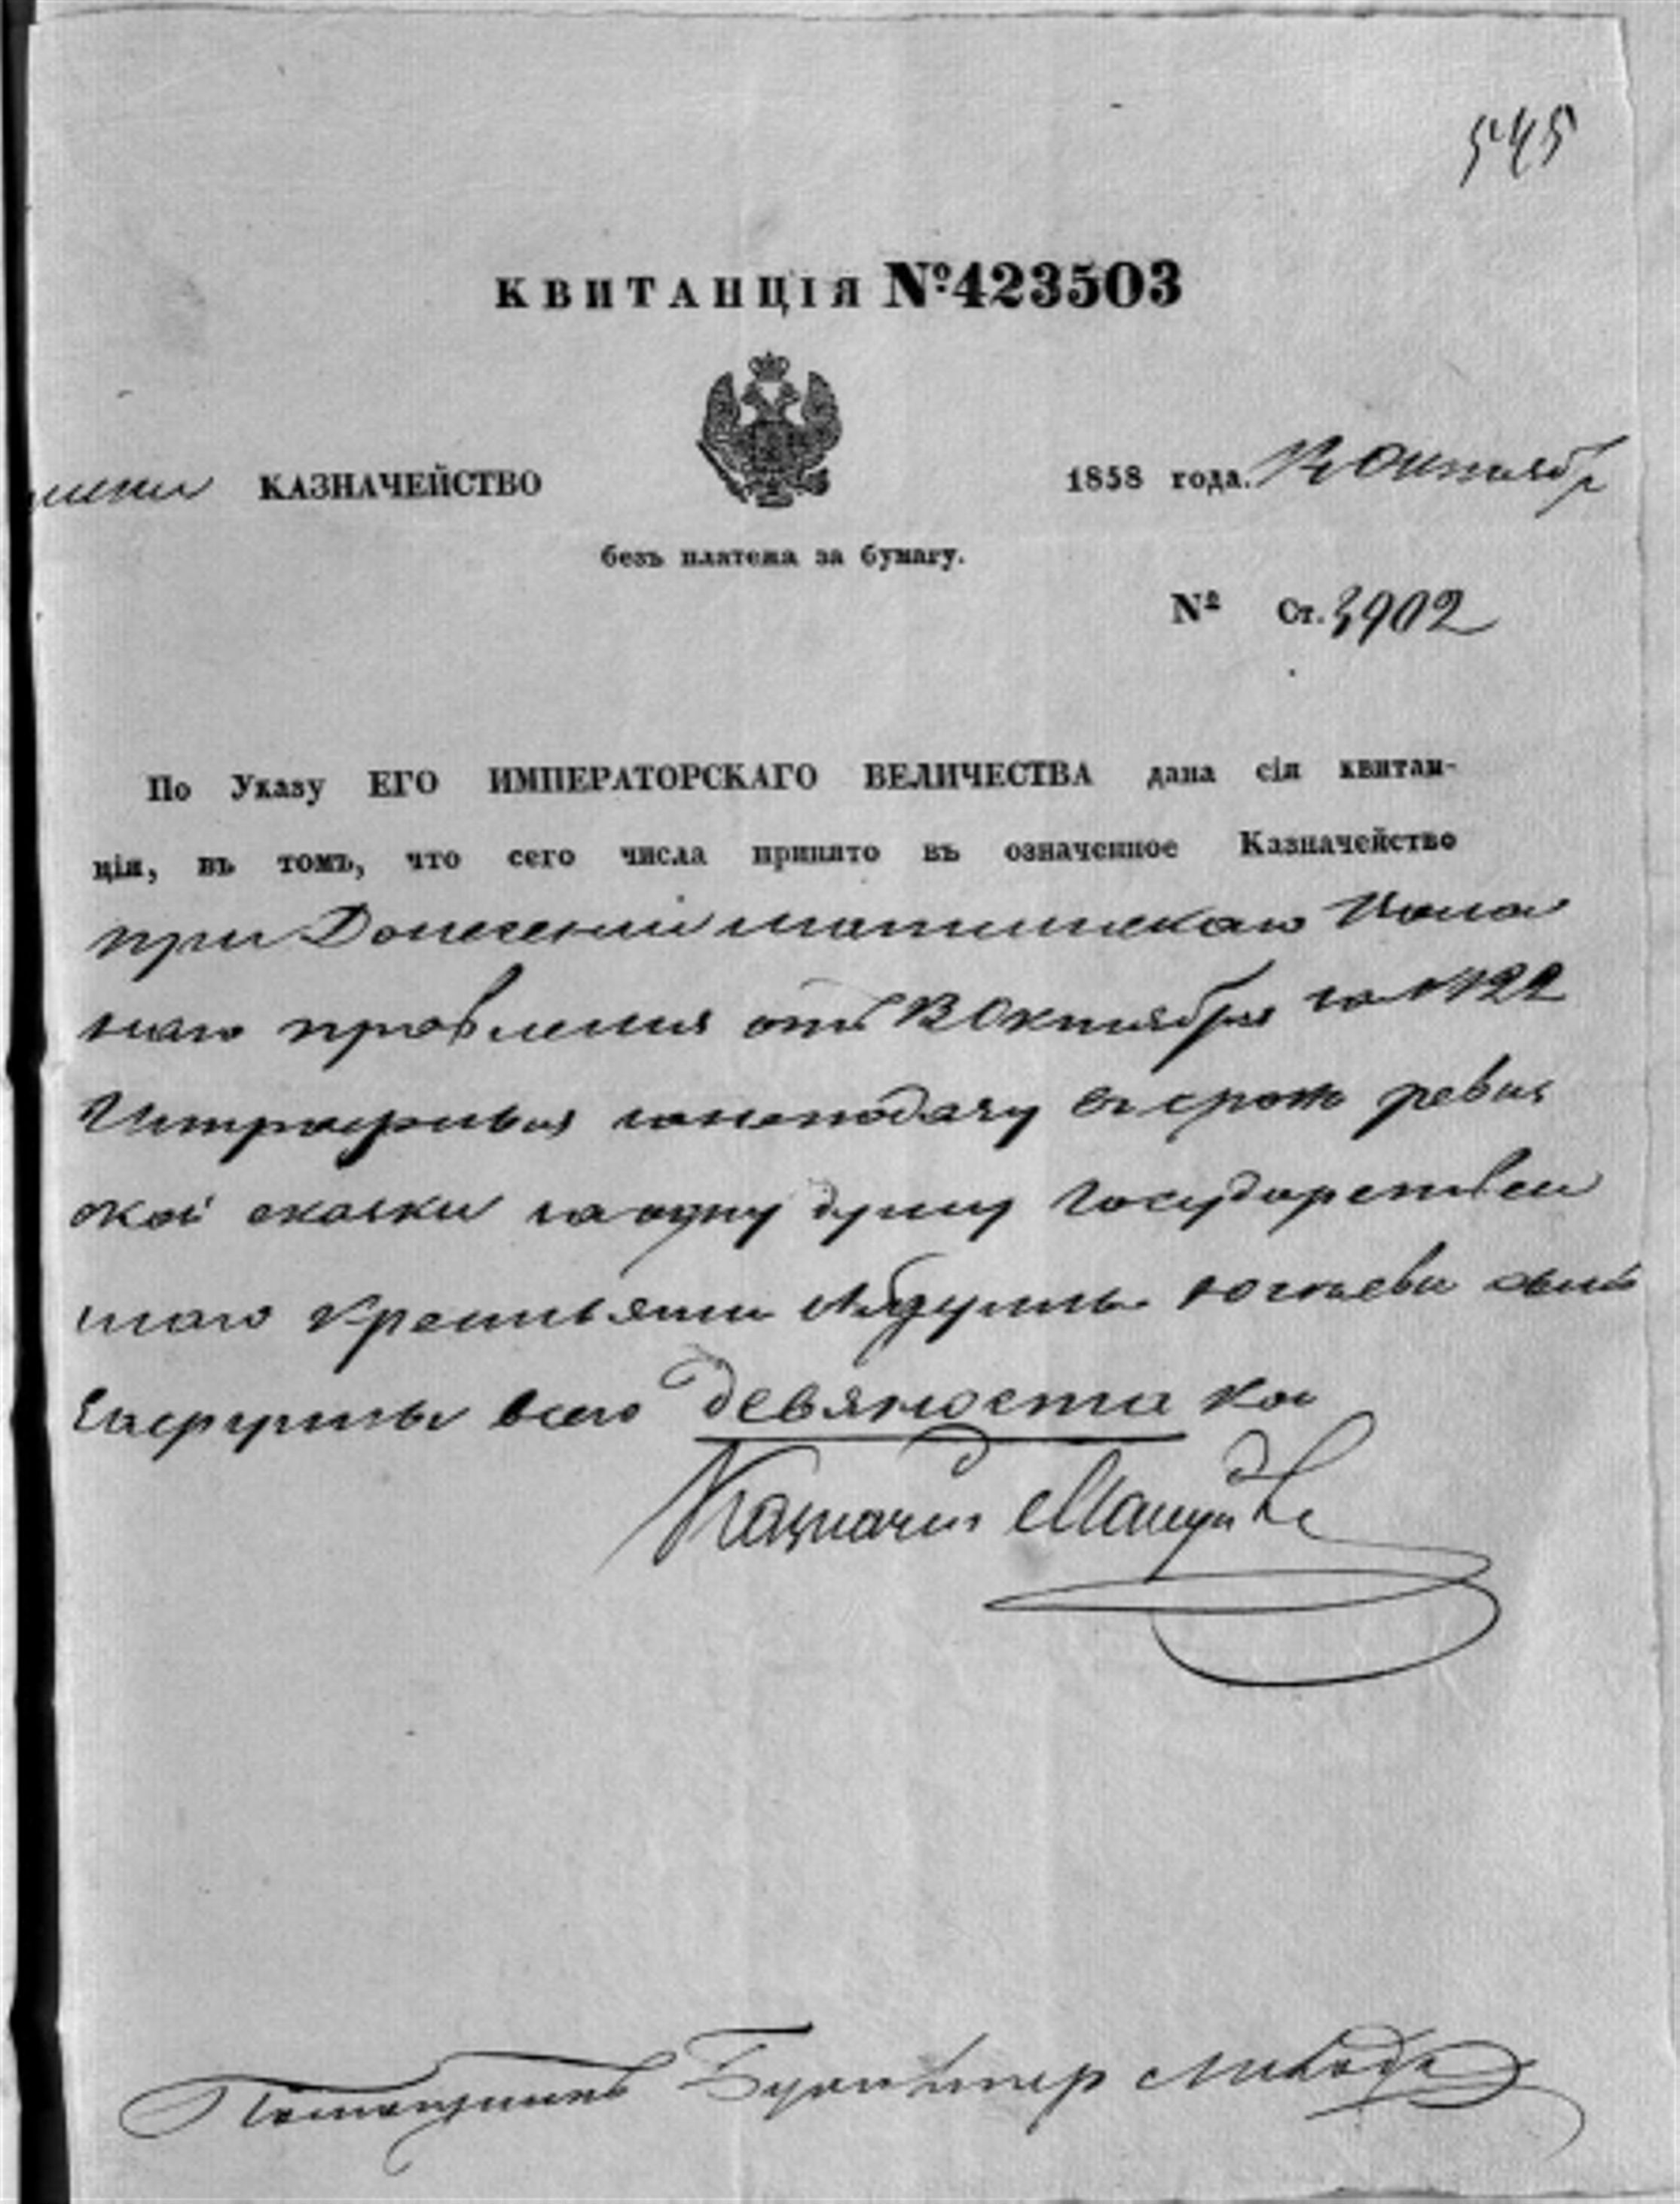 545
КВИТАНЦІЯ №423503
КАЗНАЧЕЙСТВО
1858 года. Октябр
безъ платежа за бумагу.
№ Ст. 3902
По Указу ЕГО ИМПЕРАТОРСКАГО ВЕЛИЧЕСТВА дана сія квитан-
ція, въ томъ, что сего числа принято въ означенное Казначейство
при Донесеніи Волос
наго правленія отъ Октября за №
Штрафныхъ за неподачу въ срокъ ревиз
ской сказки за одну душу Государствен
наго крестьянина
всего девяносто коп
Казначей
Помощникъ Бухгалтера